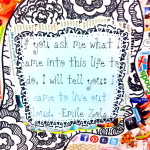 you ask me what I
came into this life to
do, I will tell you: I
came to live out
loud. -Emile Zola